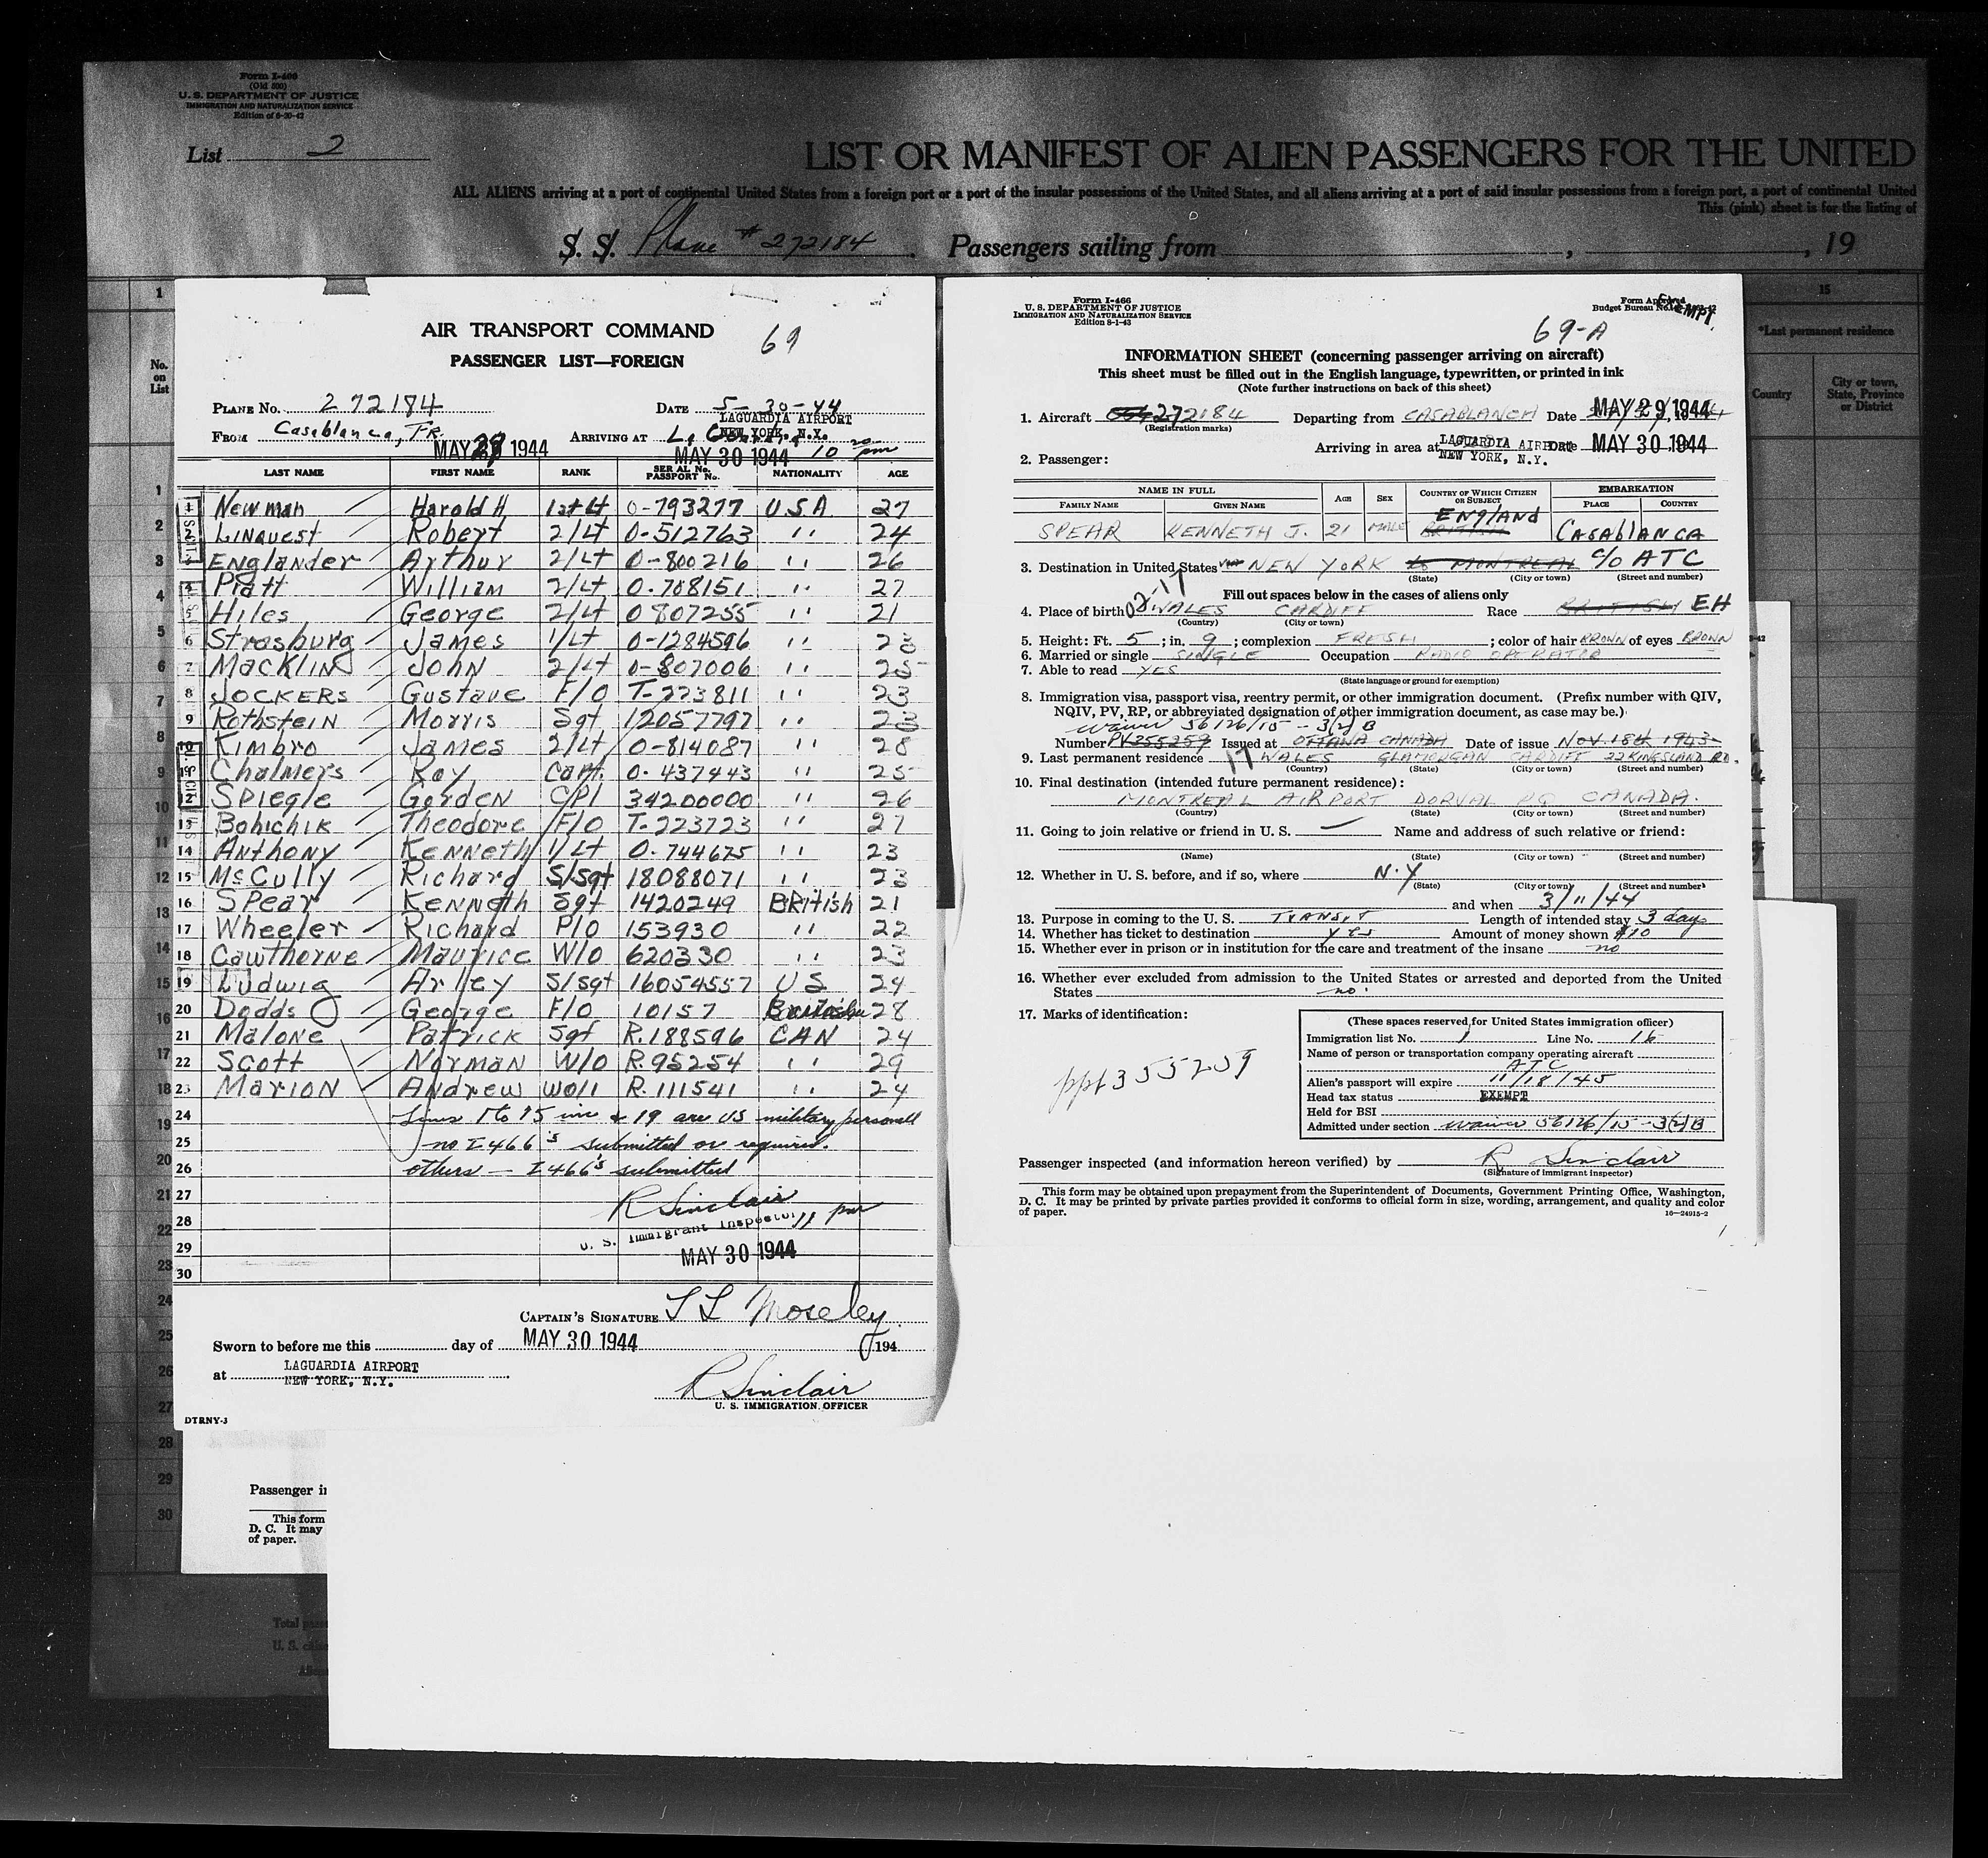 Form I-466
(Old 500)
U. S. DEPARTMENT OF JUSTICE
IMMIGRATION AND NATURALIZATION SERVICE
Edition of 6-30-42
List 2
LIST OR MANIFEST OF ALIEN PASSENGERS FOR THE UNITED
ALL ALIENS arriving at a port of continental United States from a foreign port or a port of the insular possessions of the United States, and all aliens arriving at a port of said insular possessions from a foreign port, a port of continental United
This (pink) sheet is for the listing of
S. S. Plane # 272184 . Passengers sailing from , , 19
No. on List
15
*Last permanent residence
Country
City or town, State, Province or District
AIR TRANSPORT COMMAND
69
PASSENGER LIST—FOREIGN
PLANE No. 272184 DATE 5-30-44
FROM Casablanca, Fr. MAY 29 1944 ARRIVING AT LAGUARDIA AIRPORT NEW YORK, N.Y. MAY 30 1944 10 pm
LAST NAME FIRST NAME RANK SERIAL No. PASSPORT No. NATIONALITY AGE
1 Newman Harold H 1st Lt 0-793277 USA 27
2 Linquest Robert 2/Lt 0-512763 '' 24
3 Englander Arthur 2/Lt 0-800216 '' 26
4 Piatt William 2/Lt 0-708151 '' 27
5 Hiles George 2/Lt 0807255 '' 21
6 Strasburg James 1/Lt 0-1284596 '' 23
7 MacKlin John 2/Lt 0-807006 '' 25
8 Jockers Gustave F/O T-223811 '' 23
9 Rothstein Morris Sgt 12057797 '' 23
10 Kimbro James 2/Lt 0-814087 '' 28
11 Chalmers Roy Capt. 0-437443 '' 25
12 Spiegle Gorden CPl 34200000 '' 26
13 Bohichik Theodore F/O T-223723 '' 27
14 Anthony Kenneth 1/Lt 0-744675 '' 23
15 McCully Richard S/Sgt 18088071 '' 23
16 Spear Kenneth Sgt 1420249 British 21
17 Wheeler Richard P/O 153930 '' 22
18 Cawthorne Maurice W/O 620330 '' 23
19 Ludwig Arley S/Sgt 16054557 US 24
20 Dodds George F/O 10157 28
21 Malone Patrick Sgt R.188596 CAN 24
22 Scott Norman W/O R.95254 '' 29
23 Marion Andrew WOII R.111541 '' 24
24 Lines 1 to 15 inc & 19 are US military personell
25 no I466's submitted or required.
26 others — I466's submitted
27 R Sinclair
28 U. S. Immigrant Inspector 11 pm
29 MAY 30 1944
30
CAPTAIN'S SIGNATURE L L Moseley
Sworn to before me this day of MAY 30 1944 194
at LAGUARDIA AIRPORT
NEW YORK, N.Y.
R Sinclair
U. S. IMMIGRATION OFFICER
DTRNY-3
Form I-466
U. S. DEPARTMENT OF JUSTICE
IMMIGRATION AND NATURALIZATION SERVICE
Edition 8-1-43
Form Approved
Budget Bureau No.
EXEMPT
69-A
INFORMATION SHEET (concerning passenger arriving on aircraft)
This sheet must be filled out in the English language, typewritten, or printed in ink
(Note further instructions on back of this sheet)
1. Aircraft 272184 Departing from CASABLANCA Date MAY 29 1944
(Registration marks)
Arriving in area at LAGUARDIA AIRPORT NEW YORK, N.Y. Date MAY 30 1944
2. Passenger:
NAME IN FULL AGE SEX COUNTRY OF WHICH CITIZEN OR SUBJECT EMBARKATION
FAMILY NAME GIVEN NAME PLACE COUNTRY
SPEAR KENNETH J. 21 MALE BRITISH ENGLAND CASABLANCA
3. Destination in United States NEW YORK to MONTREAL c/o ATC
(State) (City or town) (Street and number)
Fill out spaces below in the cases of aliens only
4. Place of birth WALES CARDIFF Race BRITISH EH
(Country) (City or town)
5. Height: Ft. 5; in. 9; complexion FRESH; color of hair BROWN of eyes BROWN
6. Married or single SINGLE Occupation RADIO OPERATOR
7. Able to read YES
(State language or ground for exemption)
8. Immigration visa, passport visa, reentry permit, or other immigration document. (Prefix number with QIV,
NQIV, PV, RP, or abbreviated designation of other immigration document, as case may be.)
waiver 56126/15 - 3(2) B
Number PV355259 Issued at OTTAWA CANADA Date of issue NOV. 18th 1943
9. Last permanent residence 17 WALES GLAMORGAN CARDIFF 22 KINGSLAND RD.
(Country) (State) (City or town) (Street and number)
10. Final destination (intended future permanent residence):
MONTREAL AIRPORT DORVAL PQ CANADA.
(Country) (State) (City or town) (Street and number)
11. Going to join relative or friend in U. S. — Name and address of such relative or friend:
(Name) (State) (City or town) (Street and number)
12. Whether in U. S. before, and if so, where N.Y
(State) (City or town) (Street and number)
and when 3/11/44
13. Purpose in coming to the U. S. TRANSIT Length of intended stay 3 days
14. Whether has ticket to destination yes Amount of money shown $10
15. Whether ever in prison or in institution for the care and treatment of the insane no
16. Whether ever excluded from admission to the United States or arrested and deported from the United
States no.
17. Marks of identification:
ppt 355259
(These spaces reserved for United States immigration officer)
Immigration list No. 1 Line No. 16
Name of person or transportation company operating aircraft
ATC
Alien's passport will expire 11/18/45
Head tax status EXEMPT
Held for BSI
Admitted under section waiver 56126/15-3(2)B
Passenger inspected (and information hereon verified) by R Sinclair
(Signature of immigrant inspector)
This form may be obtained upon prepayment from the Superintendent of Documents, Government Printing Office, Washington,
D. C. It may be printed by private parties provided it conforms to official form in size, wording, arrangement, and quality and color
of paper. 16—24915-2
1
Passenger in
This form
D. C. It may
of paper.